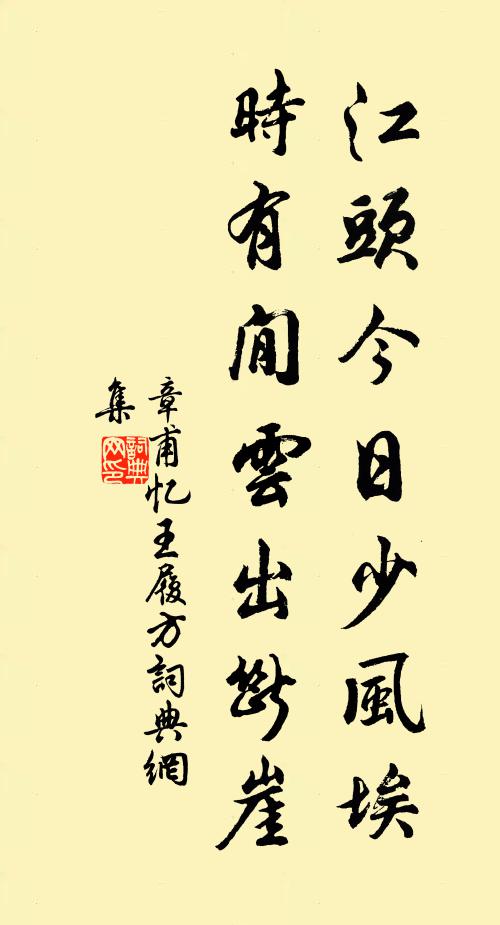 江頭今日少風埃
時有閒雲出斷崖
章甫忆王履方詞典網
集
詞典
网印